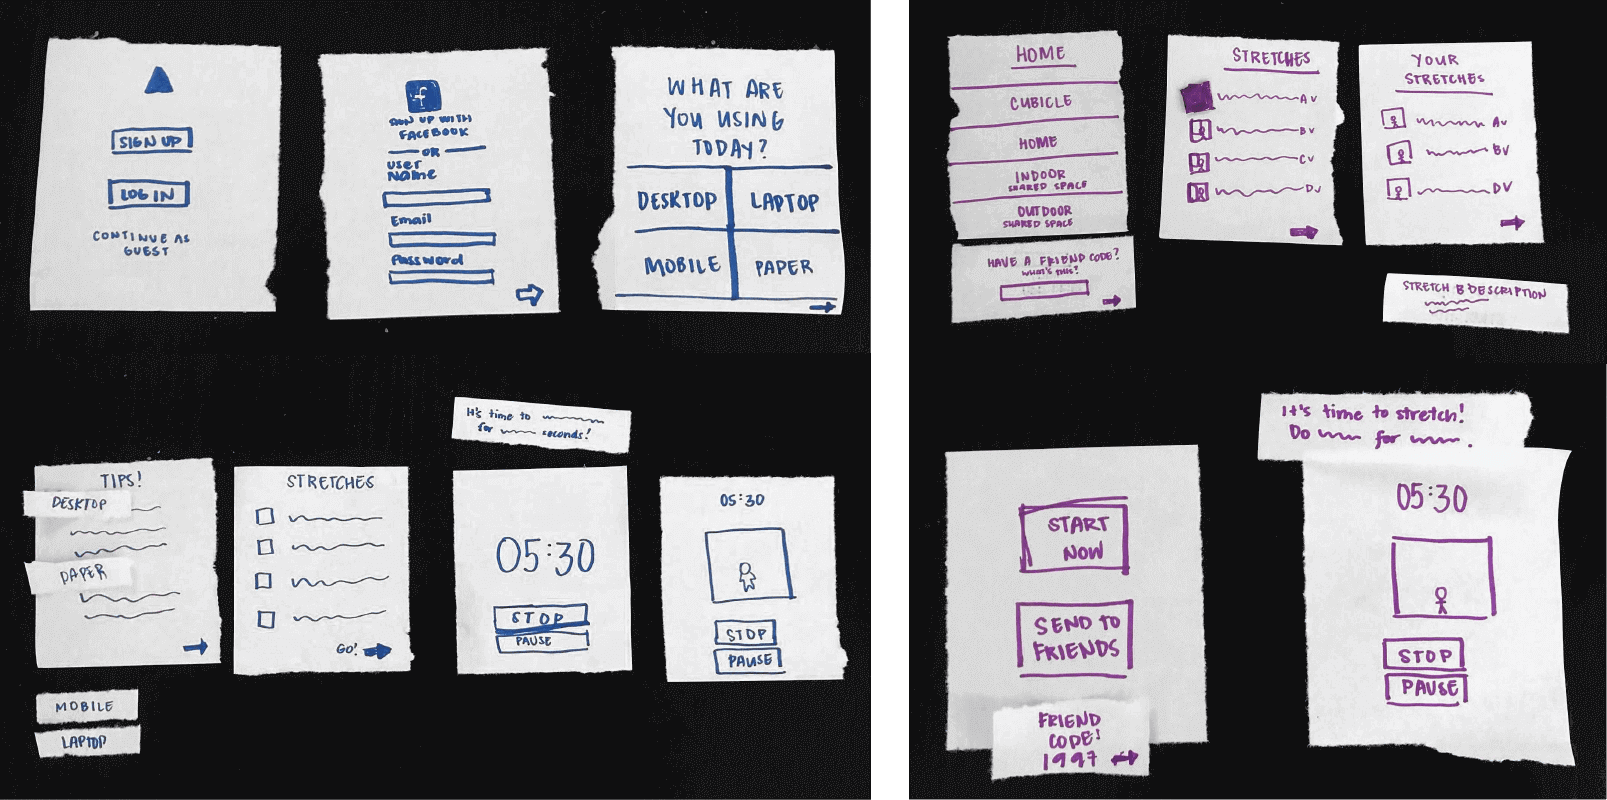 SIGN UP
LOG IN
CONTINUE AS
GUEST
f
SIGN UP WITH
FACEBOOK
OR
USER
Name
Email
Password
WHAT ARE
YOU USING
TODAY?
DESKTOP
LAPTOP
MOBILE
PAPER
It's time to
for seconds!
TIPS!
DESKTOP
PAPER
MOBILE
LAPTOP
STRETCHES
GO!
05:30
STOP
PAUSE
05:30
STOP
PAUSE
HOME
CUBICLE
HOME
INDOOR
SHARED SPACE
OUTDOOR
SHARED SPACE
HAVE A FRIEND CODE?
what's this?
STRETCHES
A v
B v
C v
D v
YOUR
STRETCHES
A v
B v
D V
STRETCH B DESCRIPTION
START
NOW
SEND to
FRIENDS
FRIEND
CODE!
1997
It's time to stretch!
Do for .
05:30
STOP
PAUSE